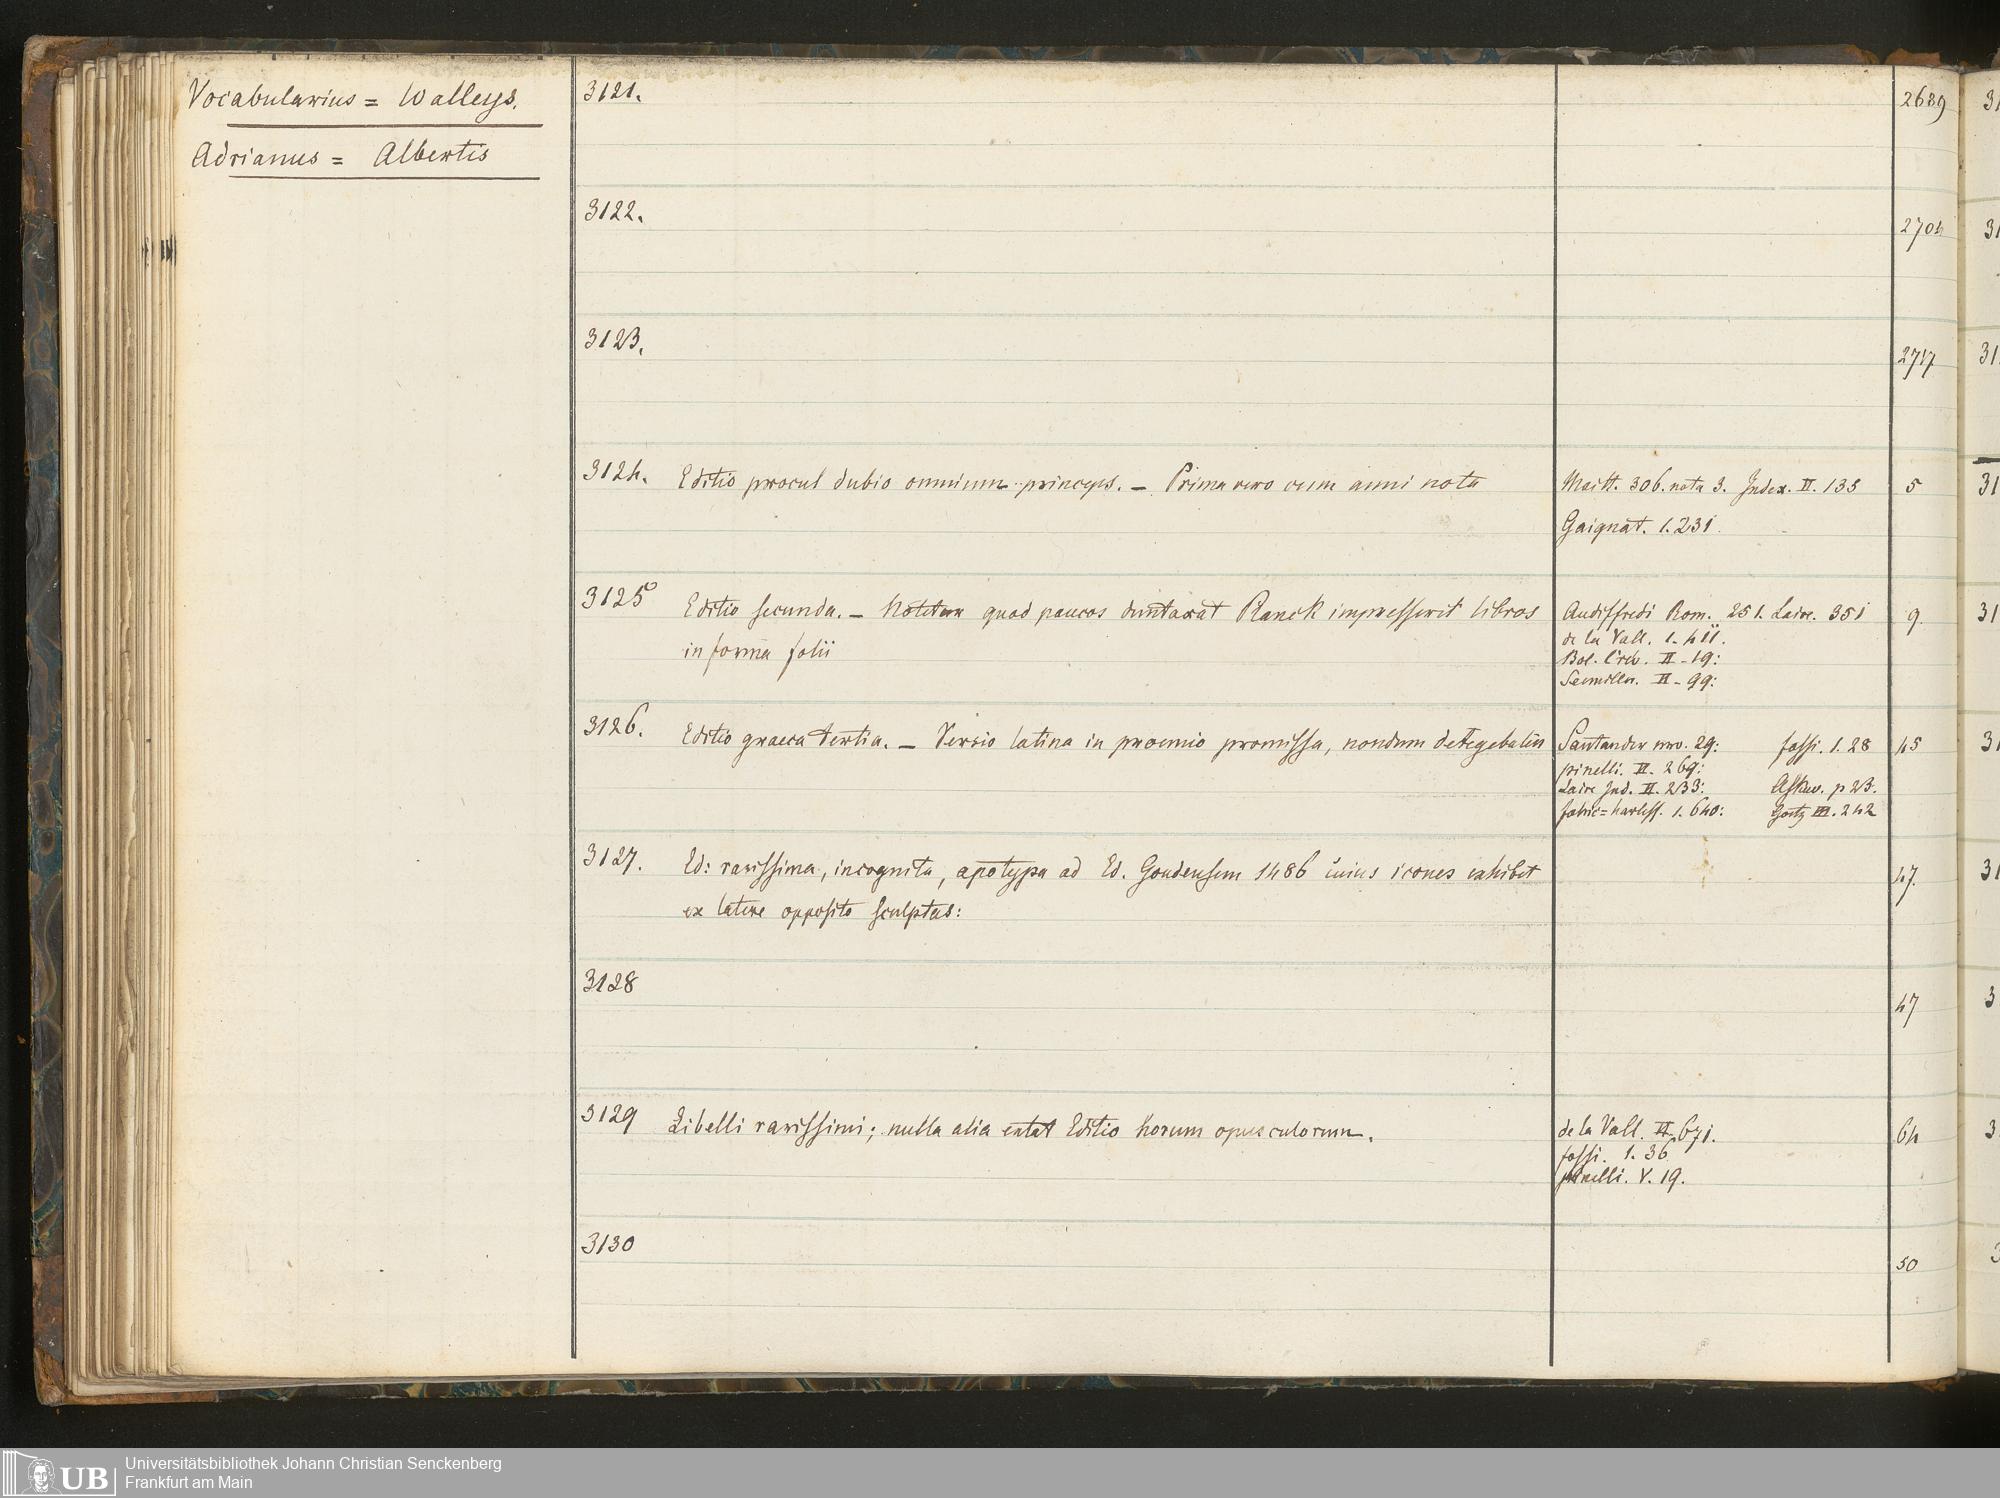 Vocabularius = Walleys.
Adrianus = Albertis
3121. 2689
3122. 2704
3123. 2717
3124. Editio procul dubio omnium princeps. – Prima vero cum anni nota
Maitt. 306. nota 3. Index. II. 133 5
Gaignat. 1. 231.
3125 Editio secunda. – Notetur quod paucos duntaxat Ranck impresserit libros
in forma folii
Audiffredi Rom. 251. Laire. 351 9.
de la Vall. 1. 411.
Bol. Crev. II - 19:
Seemiller. II - 99:
3126. Editio graeca tertia. – Versio latina in proemio promissa, nondum detegebatur
Santander nro. 29: fossi. 1. 28 45
pinelli. II. 269:
Laire Ind. II. 233: Askew. p 23.
fabric = harless. 1. 640: Goetz III. 242
3127. Ed: rarissima, incognita, apotypa ad Ed. Goudensem 1486 cuius icones exhibet
ex latere opposito sculptas:
47.
3128 47
3129 Libelli rarissimi; nulla alia extat Editio horum opusculorum.
de la Vall. II. 671. 64
fossi. 1. 36
pinelli. V. 19.
3130 50
Universitätsbibliothek Johann Christian Senckenberg
Frankfurt am Main
UB